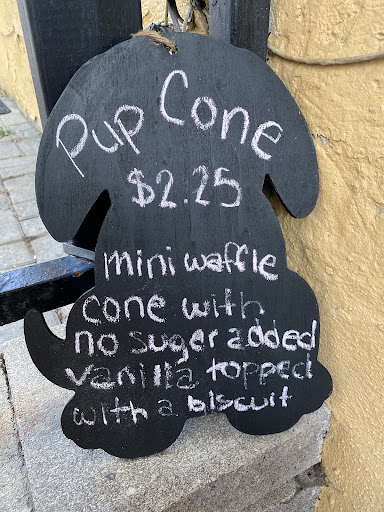 Pup Cone
$2.25
mini waffle
cone with
no suger added
vanilla topped
with a biscuit